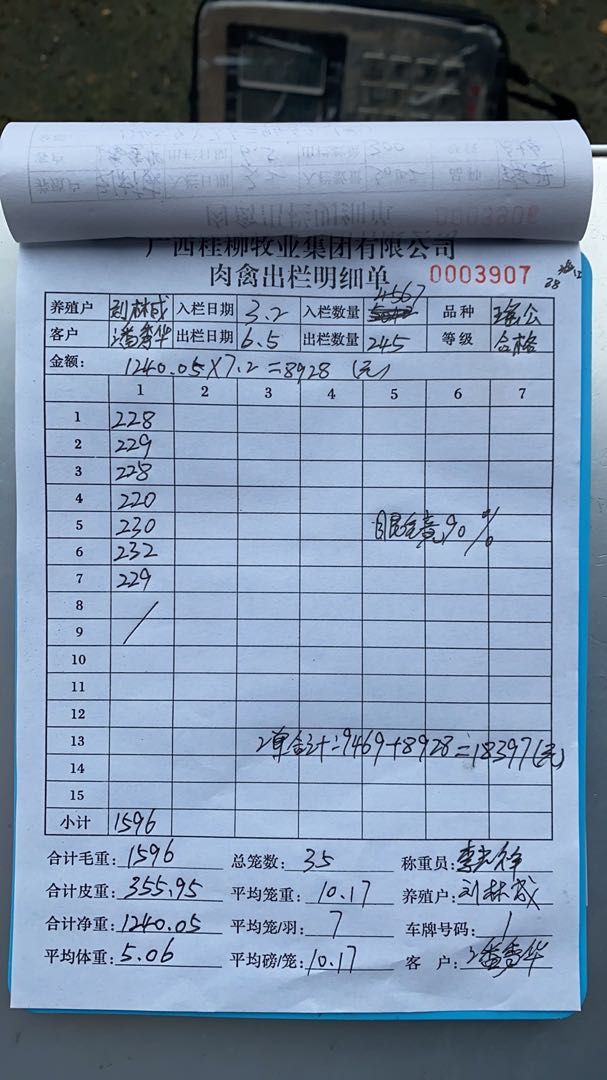 广西桂柳牧业集团有限公司
肉禽出栏明细单 0003907
养殖户 刘林成 入栏日期 3.2 入栏数量 4567 品种 瑶公
客户 潘秀华 出栏日期 6.5 出栏数量 245 等级 合格
金额: 1240.05×7.2=8928 (元)
1 2 3 4 5 6 7
1 228
2 229
3 228
4 220
5 230 90%
6 232
7 229
8
9
10
11
12
13 2单合计:9469+8928=18397(元)
14
15
小计 1596
合计毛重: 1596 总笼数: 35 称重员:
合计皮重: 355.95 平均笼重: 10.17 养殖户: 刘林成
合计净重: 1240.05 平均笼/羽: 7 车牌号码: 1
平均体重: 5.06 平均磅/笼: 10.17 客 户: 潘秀华